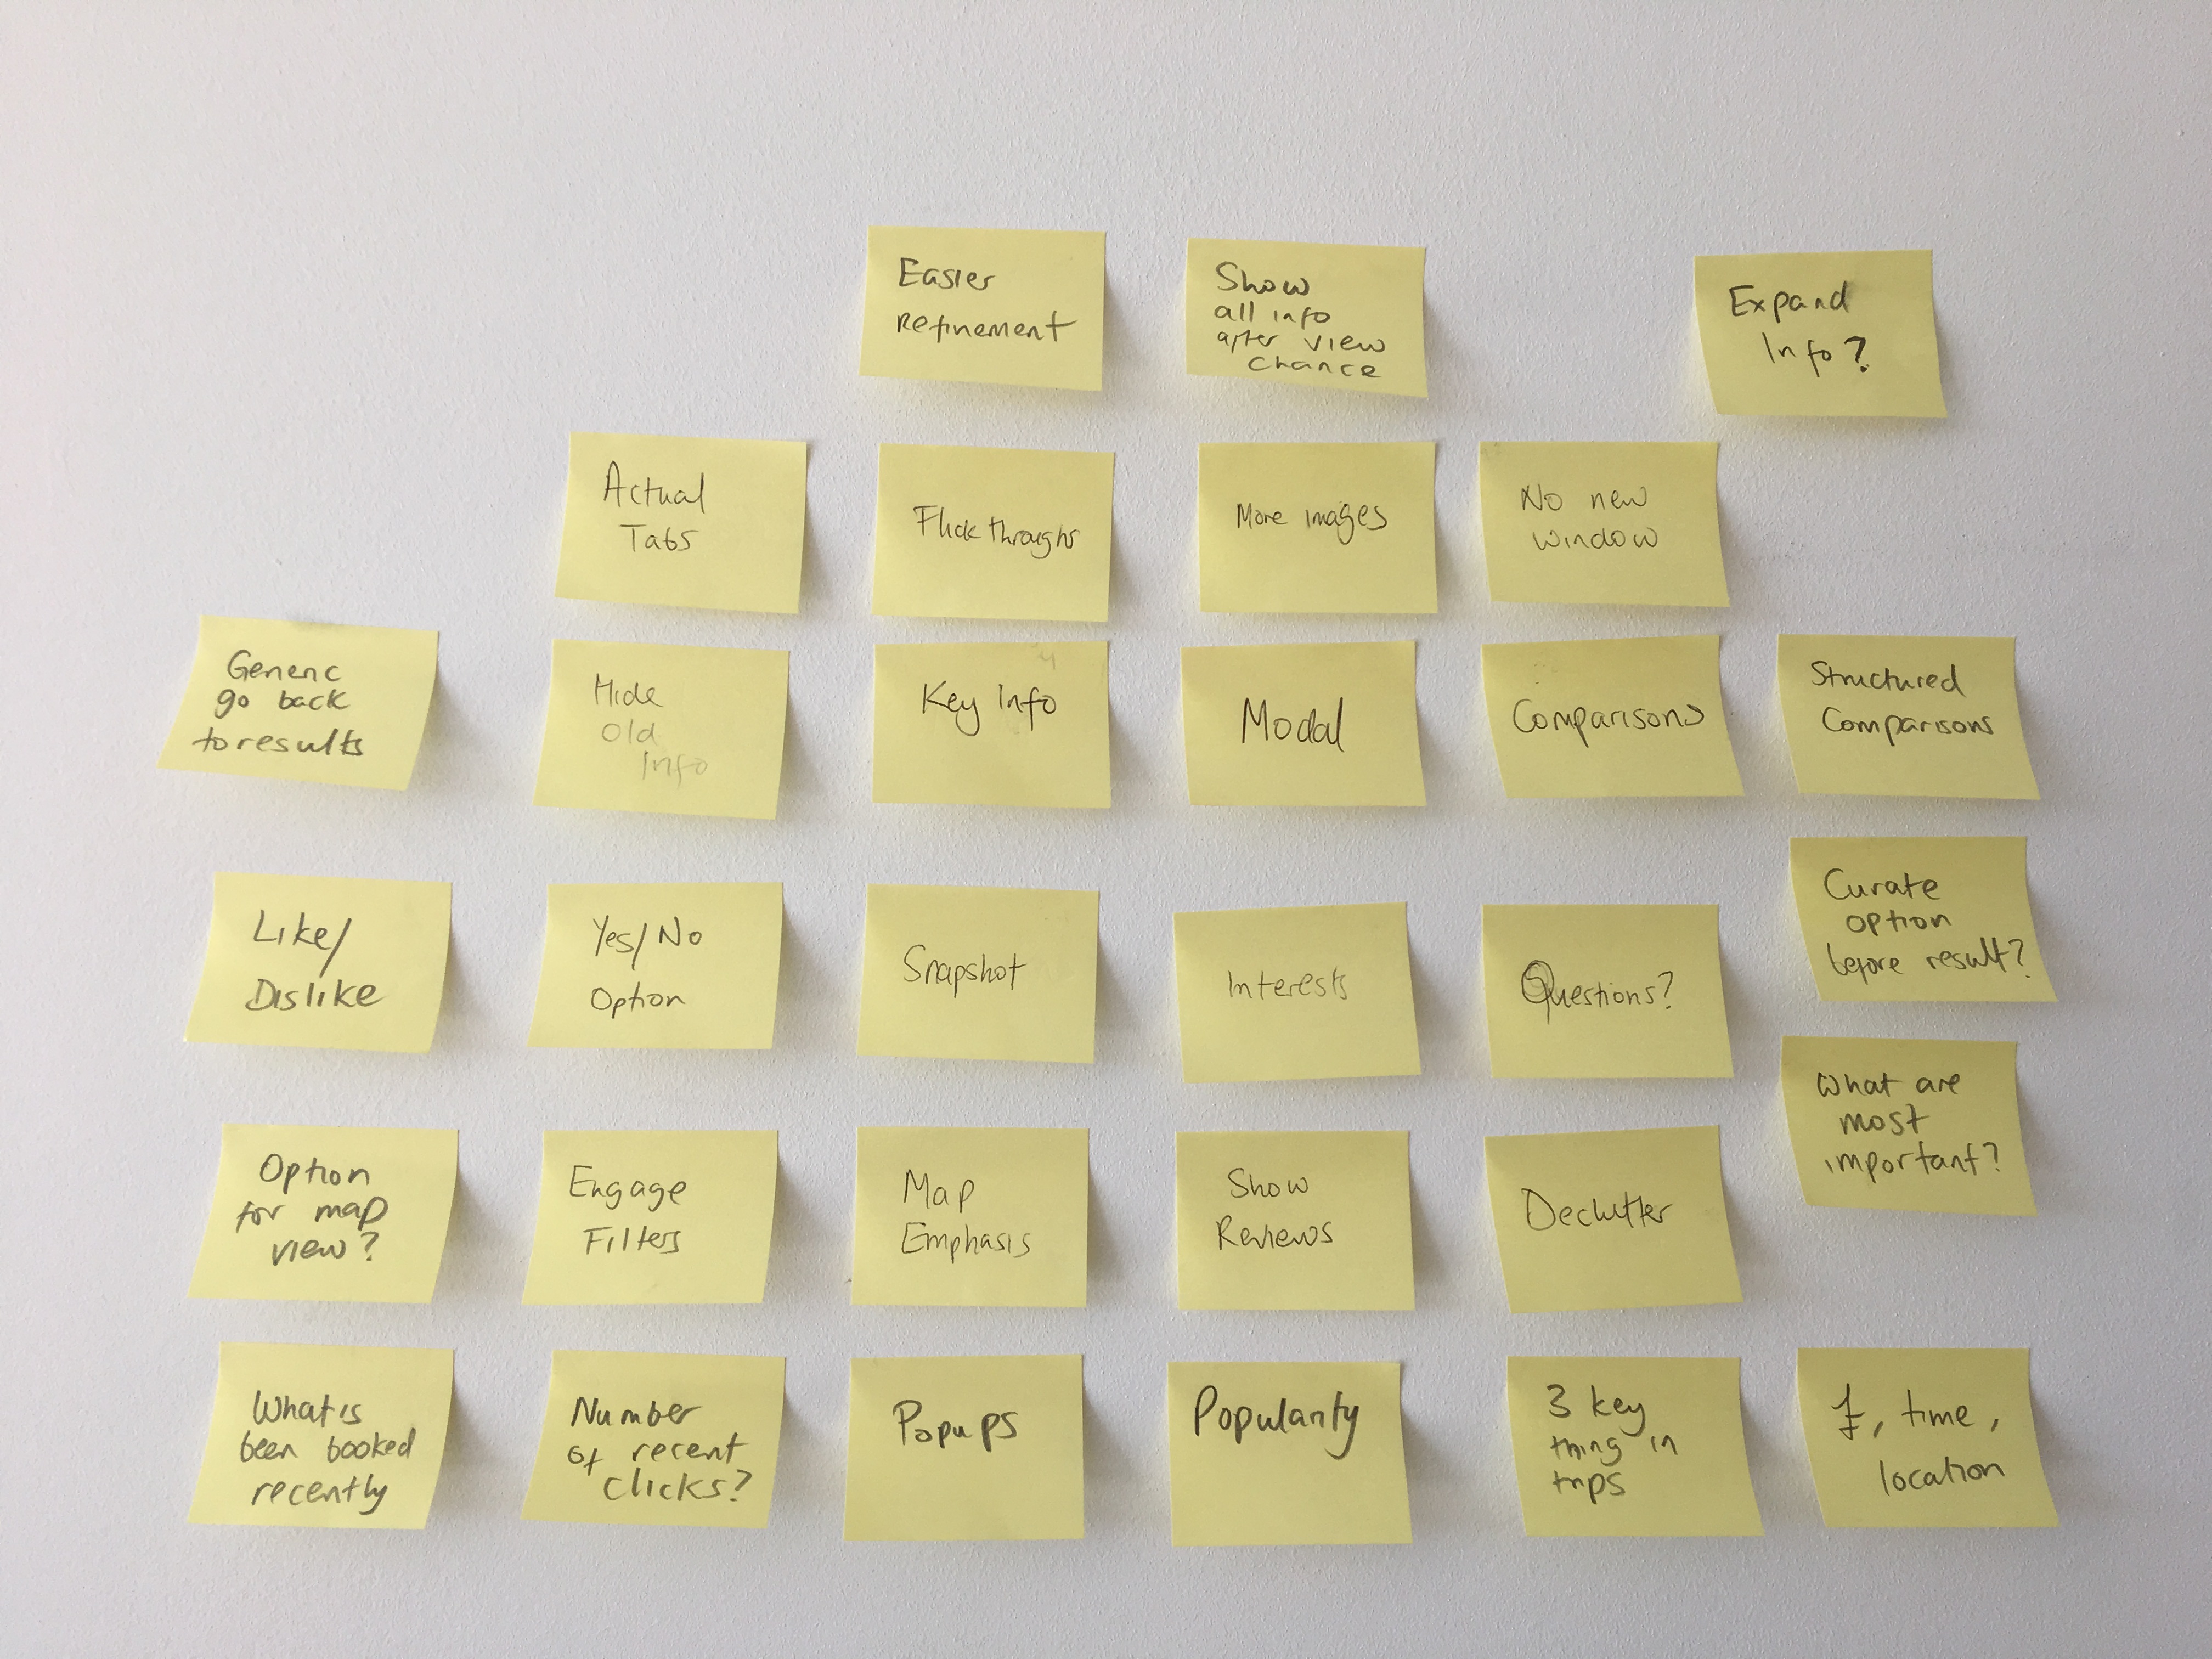 Easier
Refinement
Show
all info
after view
chance
Expand
Info?
Actual
Tabs
Flick throughs
More images
No new
window
Generic
go back
to results
Hide
Old
Info
Key Info
Modal
Comparisons
Structured
Comparisons
Like/
Dislike
Yes/No
Option
Snapshot
Interests
Questions?
Curate
option
before result?
Option
for map
view?
Engage
Filters
Map
Emphasis
Show
Reviews
Declutter
What are
most
important?
What is
been booked
recently
Number
of recent
clicks?
Popups
Popularity
3 key
thing in
trips
£, time,
location